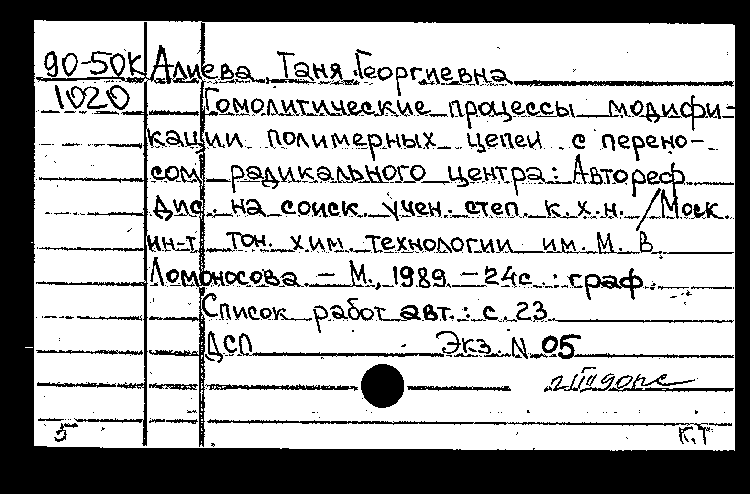 90-50К Алиева Таня Георгиевна
1020 Гомолитические процессы модифи-
кации полимерных цепей с перено-
сом радикального центра: Автореф
дис. на соиск учен. степ. к.х.н. / Моск.
ин-т. тон. хим. технологии им. М. В.
Ломоносова. – М., 1989. – 24с. : граф.
Список работ авт.: с. 23
ДСП Экз. N 05
5 К.Т